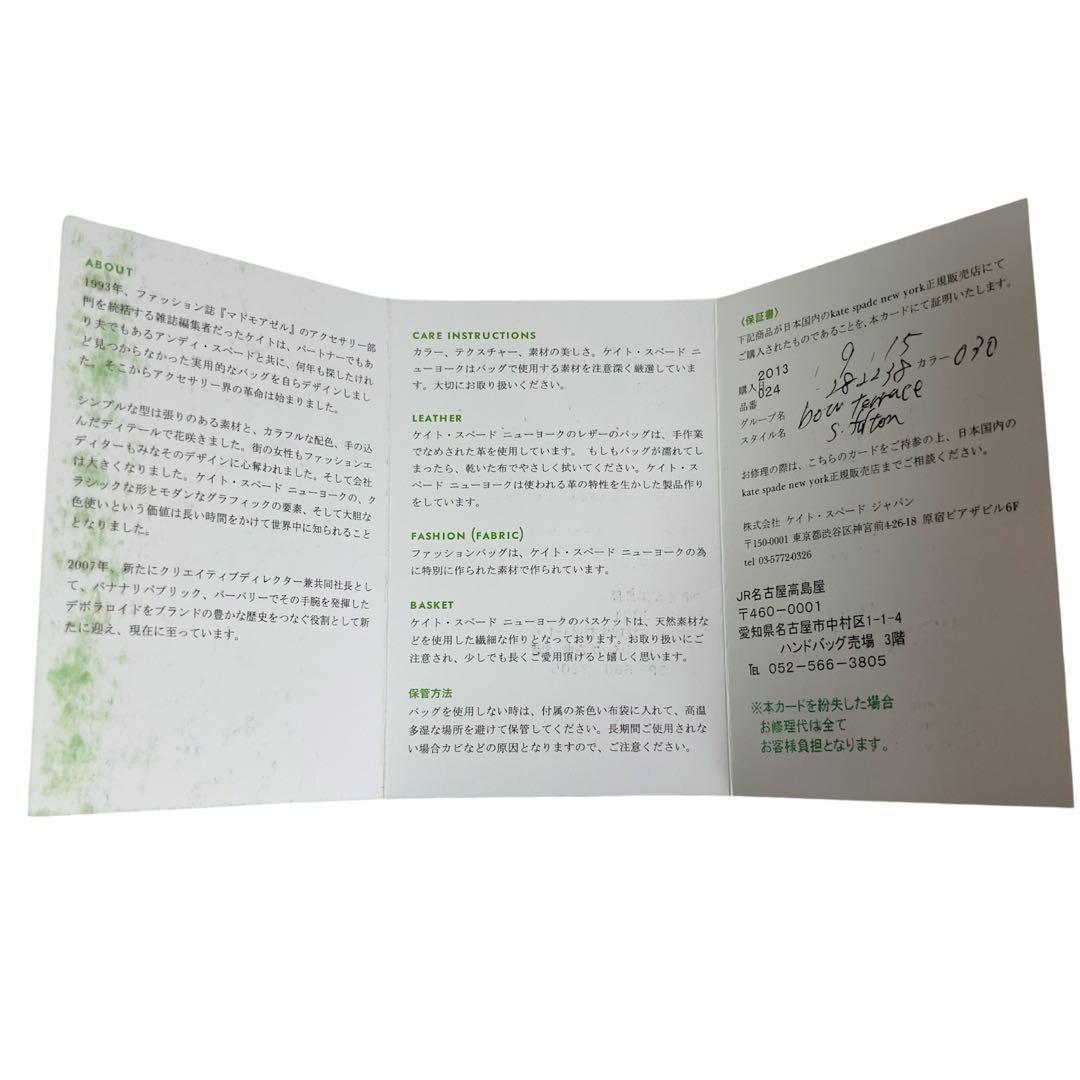 ABOUT
1993年、ファッション誌『マドモアゼル』のアクセサリー部
門を統括する雑誌編集者だったケイトは、パートナーでもあ
り夫でもあるアンディ・スペードと共に、何年も探したけれ
ど見つからなかった実用的なバッグを自らデザインしまし
た。そこからアクセサリー界の革命は始まりました。
シンプルな型は張りのある素材と、カラフルな配色、手の込
んだディテールで花咲きました。街の女性もファッションエ
ディターもみなそのデザインに心奪われました。そして会社
は大きくなりました。ケイト・スペード ニューヨークの、ク
ラシックな形とモダンなグラフィックの要素、そして大胆な
色使いという価値は長い時間をかけて世界中に知られること
となりました。
2007年、新たにクリエイティブディレクター兼共同社長とし
て、バナナリパブリック、バーバリーでその手腕を発揮した
デボラロイドをブランドの豊かな歴史をつなぐ役割として新
たに迎え、現在に至っています。
CARE INSTRUCTIONS
カラー、テクスチャー、素材の美しさ。ケイト・スペード ニ
ューヨークはバッグで使用する素材を注意深く厳選していま
す。大切にお取り扱いください。
LEATHER
ケイト・スペード ニューヨークのレザーのバッグは、手作業
でなめされた革を使用しています。 もしもバッグが濡れてし
まったら、乾いた布でやさしく拭いてください。ケイト・ス
ペード ニューヨークは使われる革の特性を生かした製品作り
をしています。
FASHION (FABRIC)
ファッションバッグは、ケイト・スペード ニューヨークの為
に特別に作られた素材で作られています。
BASKET
ケイト・スペード ニューヨークのバスケットは、天然素材な
どを使用した繊細な作りとなっております。お取り扱いにご
注意され、少しでも長くご愛用頂けると嬉しく思います。
保管方法
バッグを使用しない時は、付属の茶色い布袋に入れて、高温
多湿な場所を避けて保管してください。長期間ご使用されな
い場合カビなどの原因となりますので、ご注意ください。
〈保証書〉
下記商品が日本国内のkate spade new york正規販売店にて
ご購入されたものであることを、本カードにて証明いたします。
購入日 2013 . 9 . 15
024
品番 282238 カラー 030
グループ名 bow terrace
スタイル名 s.
お修理の際は、こちらのカードをご持参の上、日本国内の
kate spade new york正規販売店までご相談ください。
株式会社 ケイト・スペード ジャパン
〒150-0001 東京都渋谷区神宮前4-26-18 原宿ピアザビル6F
tel 03-5772-0326
JR名古屋高島屋
〒460-0001
愛知県名古屋市中村区1-1-4
ハンドバッグ売場 3階
℡ 052-566-3805
※本カードを紛失した場合
お修理代は全て
お客様負担となります。